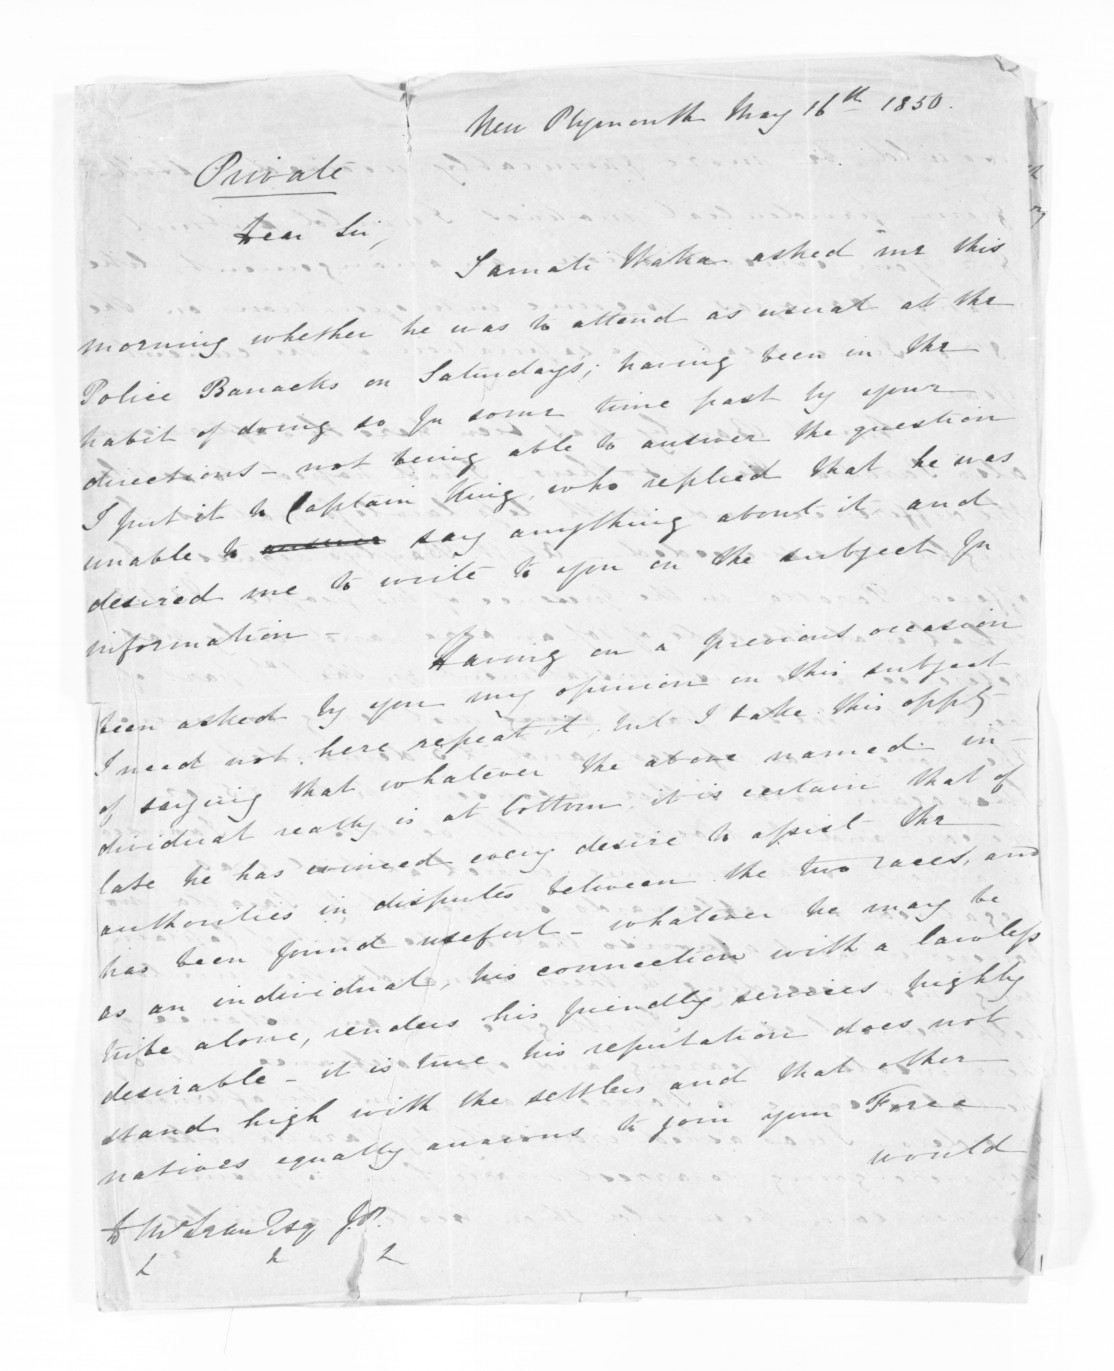 New Plymouth May 16th 1850.
Private
Dear Sir,
Tamati Waka asked me this
morning whether he was to attend as usual at the
Police Barracks on Saturdays; having been in the
habit of doing so for some time past by your
directions - not being able to answer the question
I put it to Captain King, who replied that he was
unable to answer say anything about it and
desired me to write to you on the subject for
information -
Having on a previous occasion
been asked by you my opinion on this subject
I need not here repeat it, but I take this oppty
of saying that whatever the above named in-
dividual really is at bottom, it is certain that of
late he has evinced every desire to assist the
authorities in disputes between the two races, and
has been found useful - whatever he may be
as an individual, his connection with a lawless
tribe alone, renders his friendly services highly
desirable - it is true his reputation does not
stand high with the settlers and that other
natives equally anxious to join your Force
would
D McLean Esq J.P.